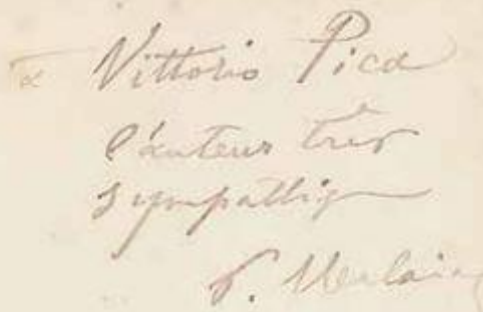 à Vittorio Pica
l'auteur très
sympathiq
P. Verlaine